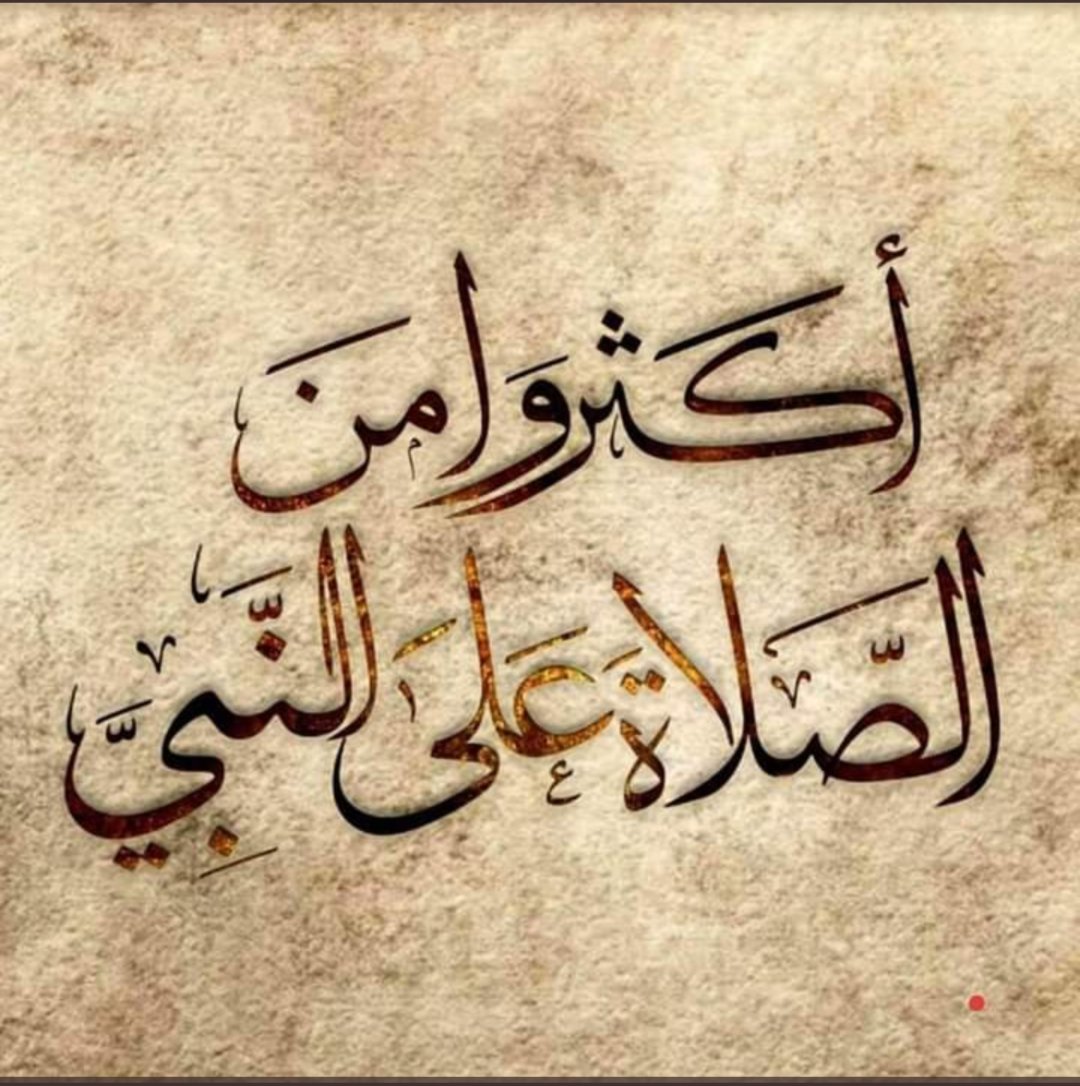 أكثروا منَ
الصَّلاةَ عَلى النَّبِيَّ